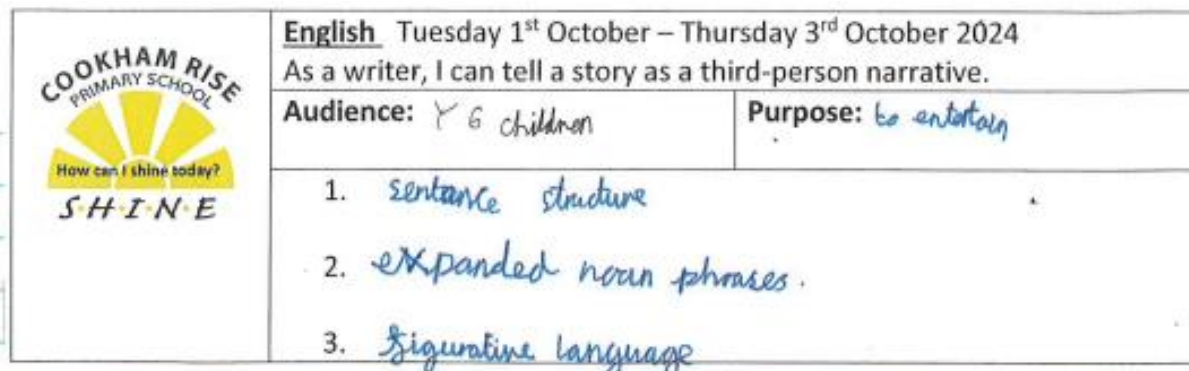 COOKHAM RISE
PRIMARY SCHOOL
How can I shine today?
S·H·I·N·E
English Tuesday 1st October – Thursday 3rd October 2024
As a writer, I can tell a story as a third-person narrative.
Audience: Y6 children
Purpose: to entertain
1. sentance structure
2. expanded noun phrases.
3. figurative language